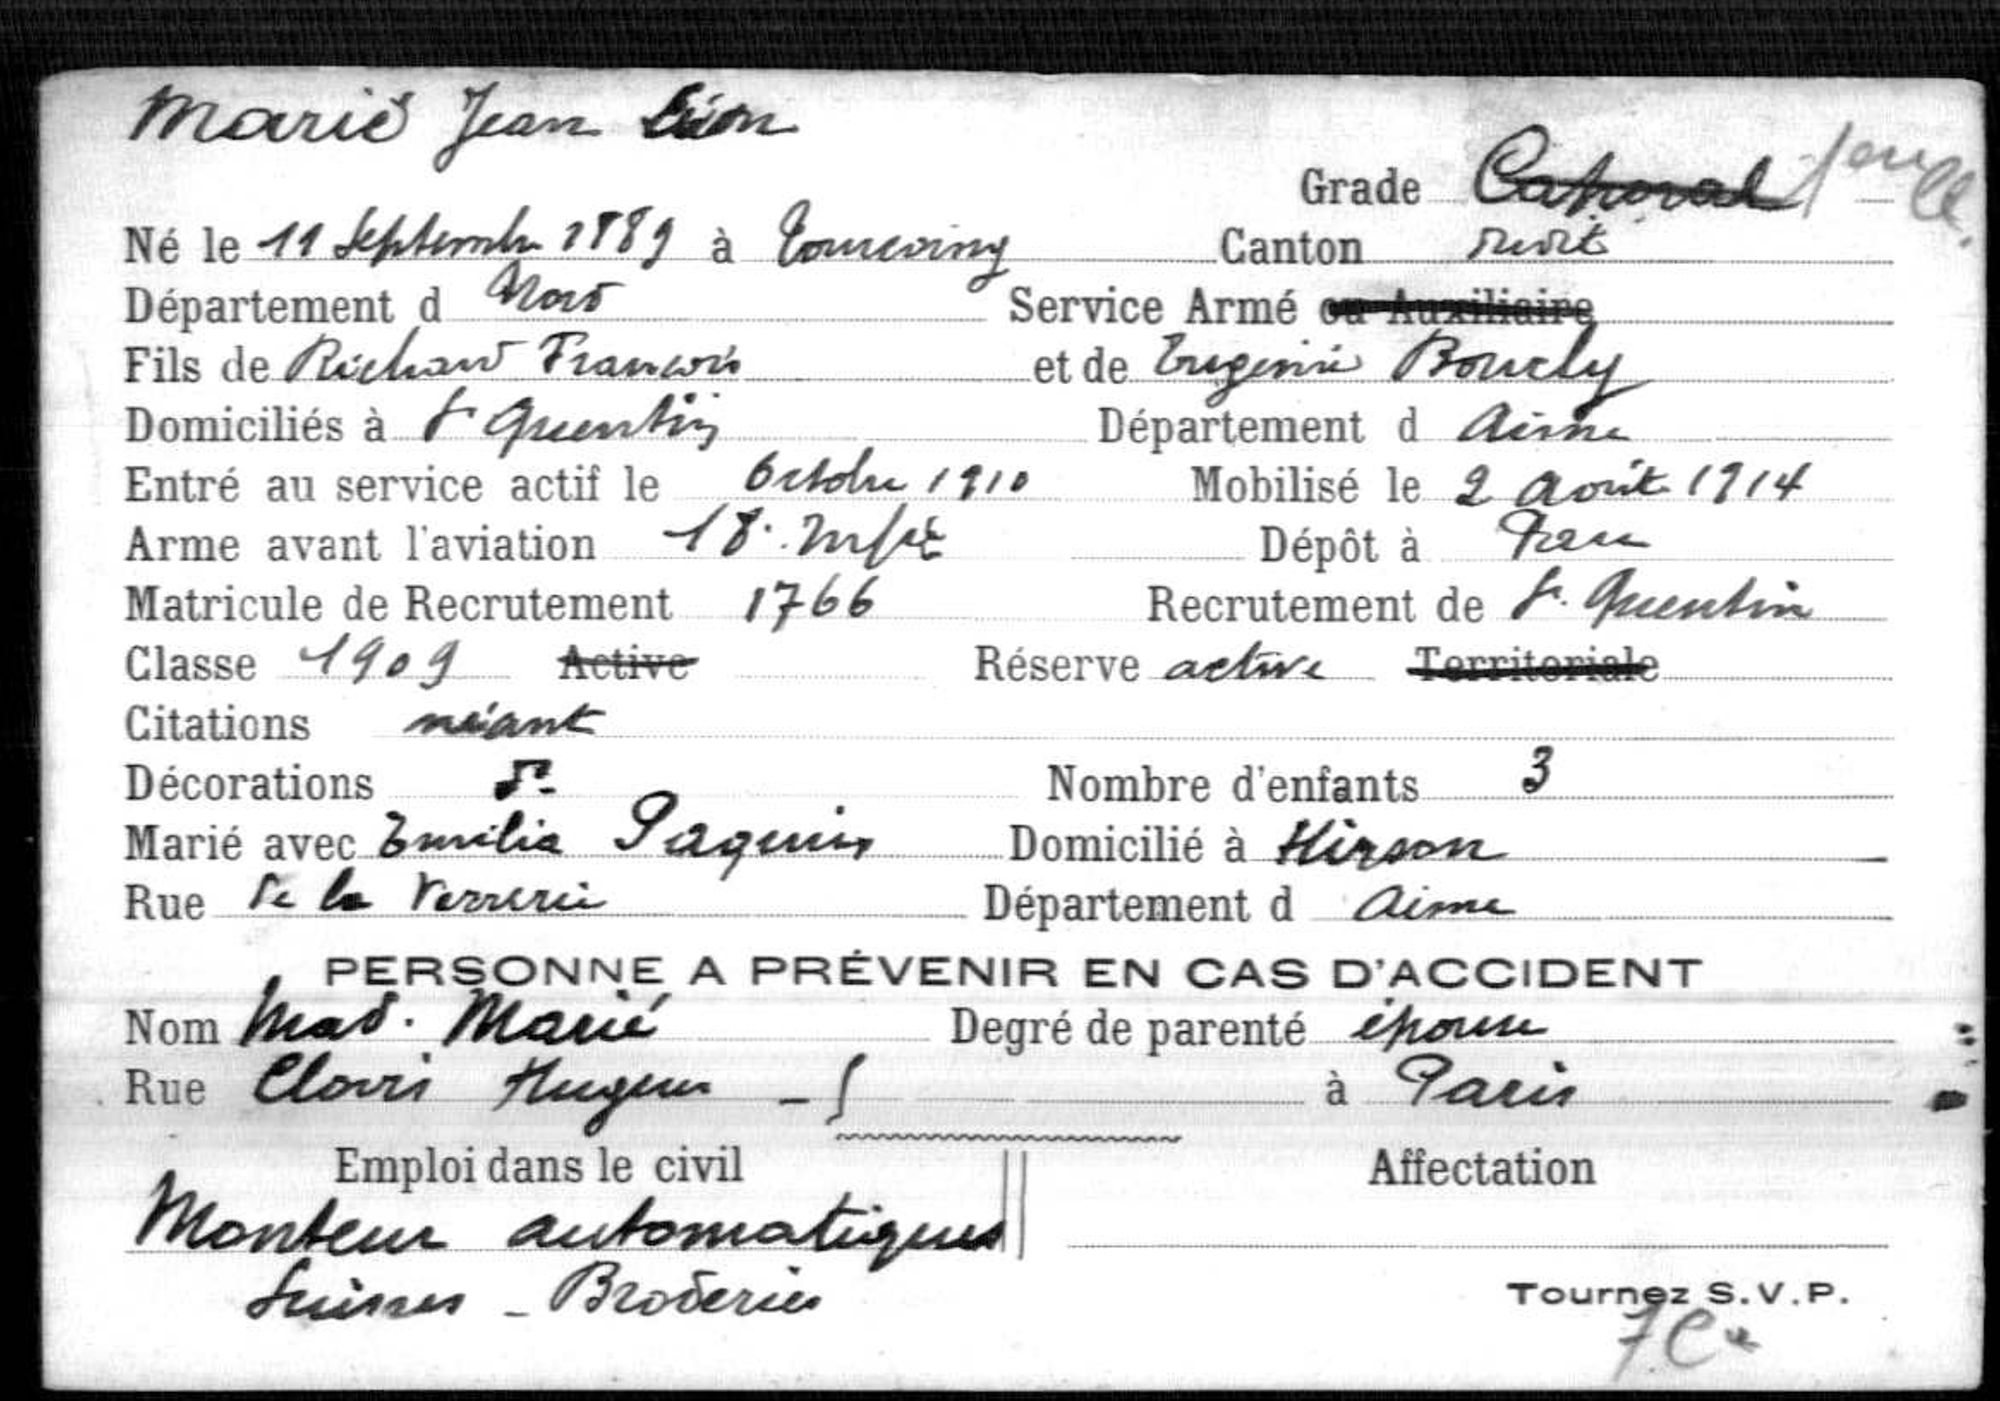 Marié Jean Léon
Grade Caporal
Né le 11 Septembre 1889 à Tourcoing Canton dudit
Département d Nord Service Armé ou Auxiliaire
Fils de Richard François et de Eugénie Bourely
Domiciliés à St Quentin Département d Aisne
Entré au service actif le Octobre 1910 Mobilisé le 2 Août 1914
Arme avant l'aviation 18e Inf Dépôt à Pau
Matricule de Recrutement 1766 Recrutement de St Quentin
Classe 1909 Active Réserve active Territoriale
Citations néant
Décorations do Nombre d'enfants 3
Marié avec Emilia Paquin Domicilié à Hirson
Rue de la Verrerie Département d Aisne
PERSONNE A PRÉVENIR EN CAS D'ACCIDENT
Nom Mad. Marié Degré de parenté épouse
Rue Clovis Hugues à Paris
Emploi dans le civil Affectation
Monteur automatiques
Suisses - Broderies
Tournez S.V.P.